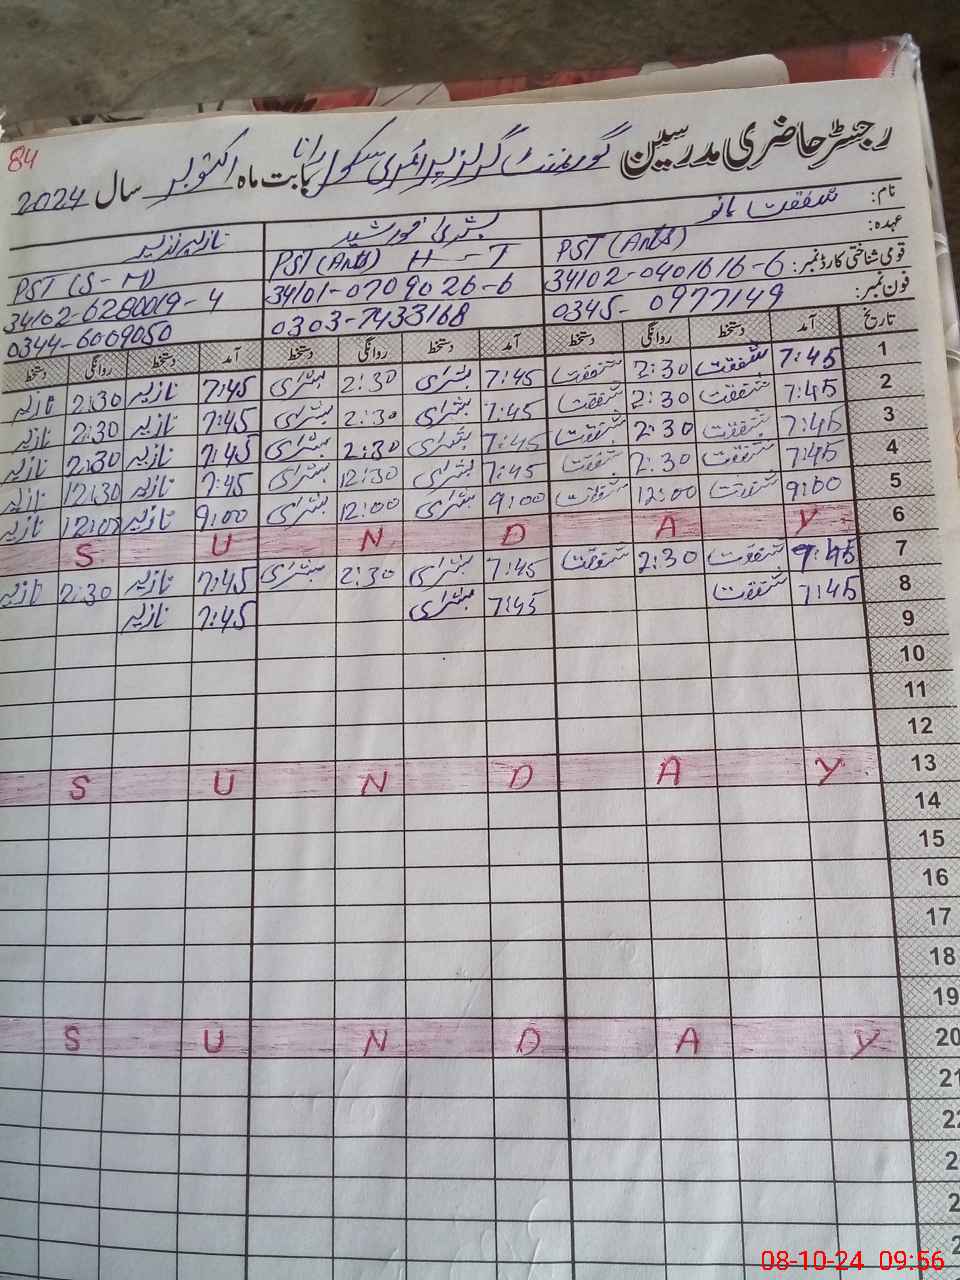 84
رجسٹر حاضری مدرسین گورنمنٹ گرلز پرائمری سکول رانا بابت ماہ اکتوبر سال 2024
نام: شفقت بانو بشریٰ خورشید نازیہ نذیر
عہدہ: PST (Arts) PST (Arts) H - T PST (S - M)
قومی شناختی کارڈ نمبر: 34102-0401616-6 34101-0709026-6 34102-6280019-4
فون نمبر: 0345-0977149 0303-7433168 0344-6009050
تاریخ آمد دستخط روانگی دستخط آمد دستخط روانگی دستخط آمد دستخط روانگی دستخط
1 7:45 شفقت 2:30 شفقت 7:45 بشریٰ 2:30 بشریٰ 7:45 نازیہ 2:30 نازیہ
2 7:45 شفقت 2:30 شفقت 7:45 بشریٰ 2:30 بشریٰ 7:45 نازیہ 2:30 نازیہ
3 7:45 شفقت 2:30 شفقت 7:45 بشریٰ 2:30 بشریٰ 7:45 نازیہ 2:30 نازیہ
4 7:45 شفقت 2:30 شفقت 7:45 بشریٰ 12:30 بشریٰ 7:45 نازیہ 12:30 نازیہ
5 9:00 شفقت 12:00 شفقت 9:00 بشریٰ 12:00 بشریٰ 9:00 نازیہ 12:00 نازیہ
6 S U N D A Y
7 7:45 شفقت 2:30 شفقت 7:45 بشریٰ 2:30 بشریٰ 7:45 نازیہ 2:30 نازیہ
8 7:45 شفقت 7:45 بشریٰ 7:45 نازیہ
9
10
11
12
13 S U N D A Y
14
15
16
17
18
19
20 S U N D A Y
21
22
2
2
2
08-10-24 09:56